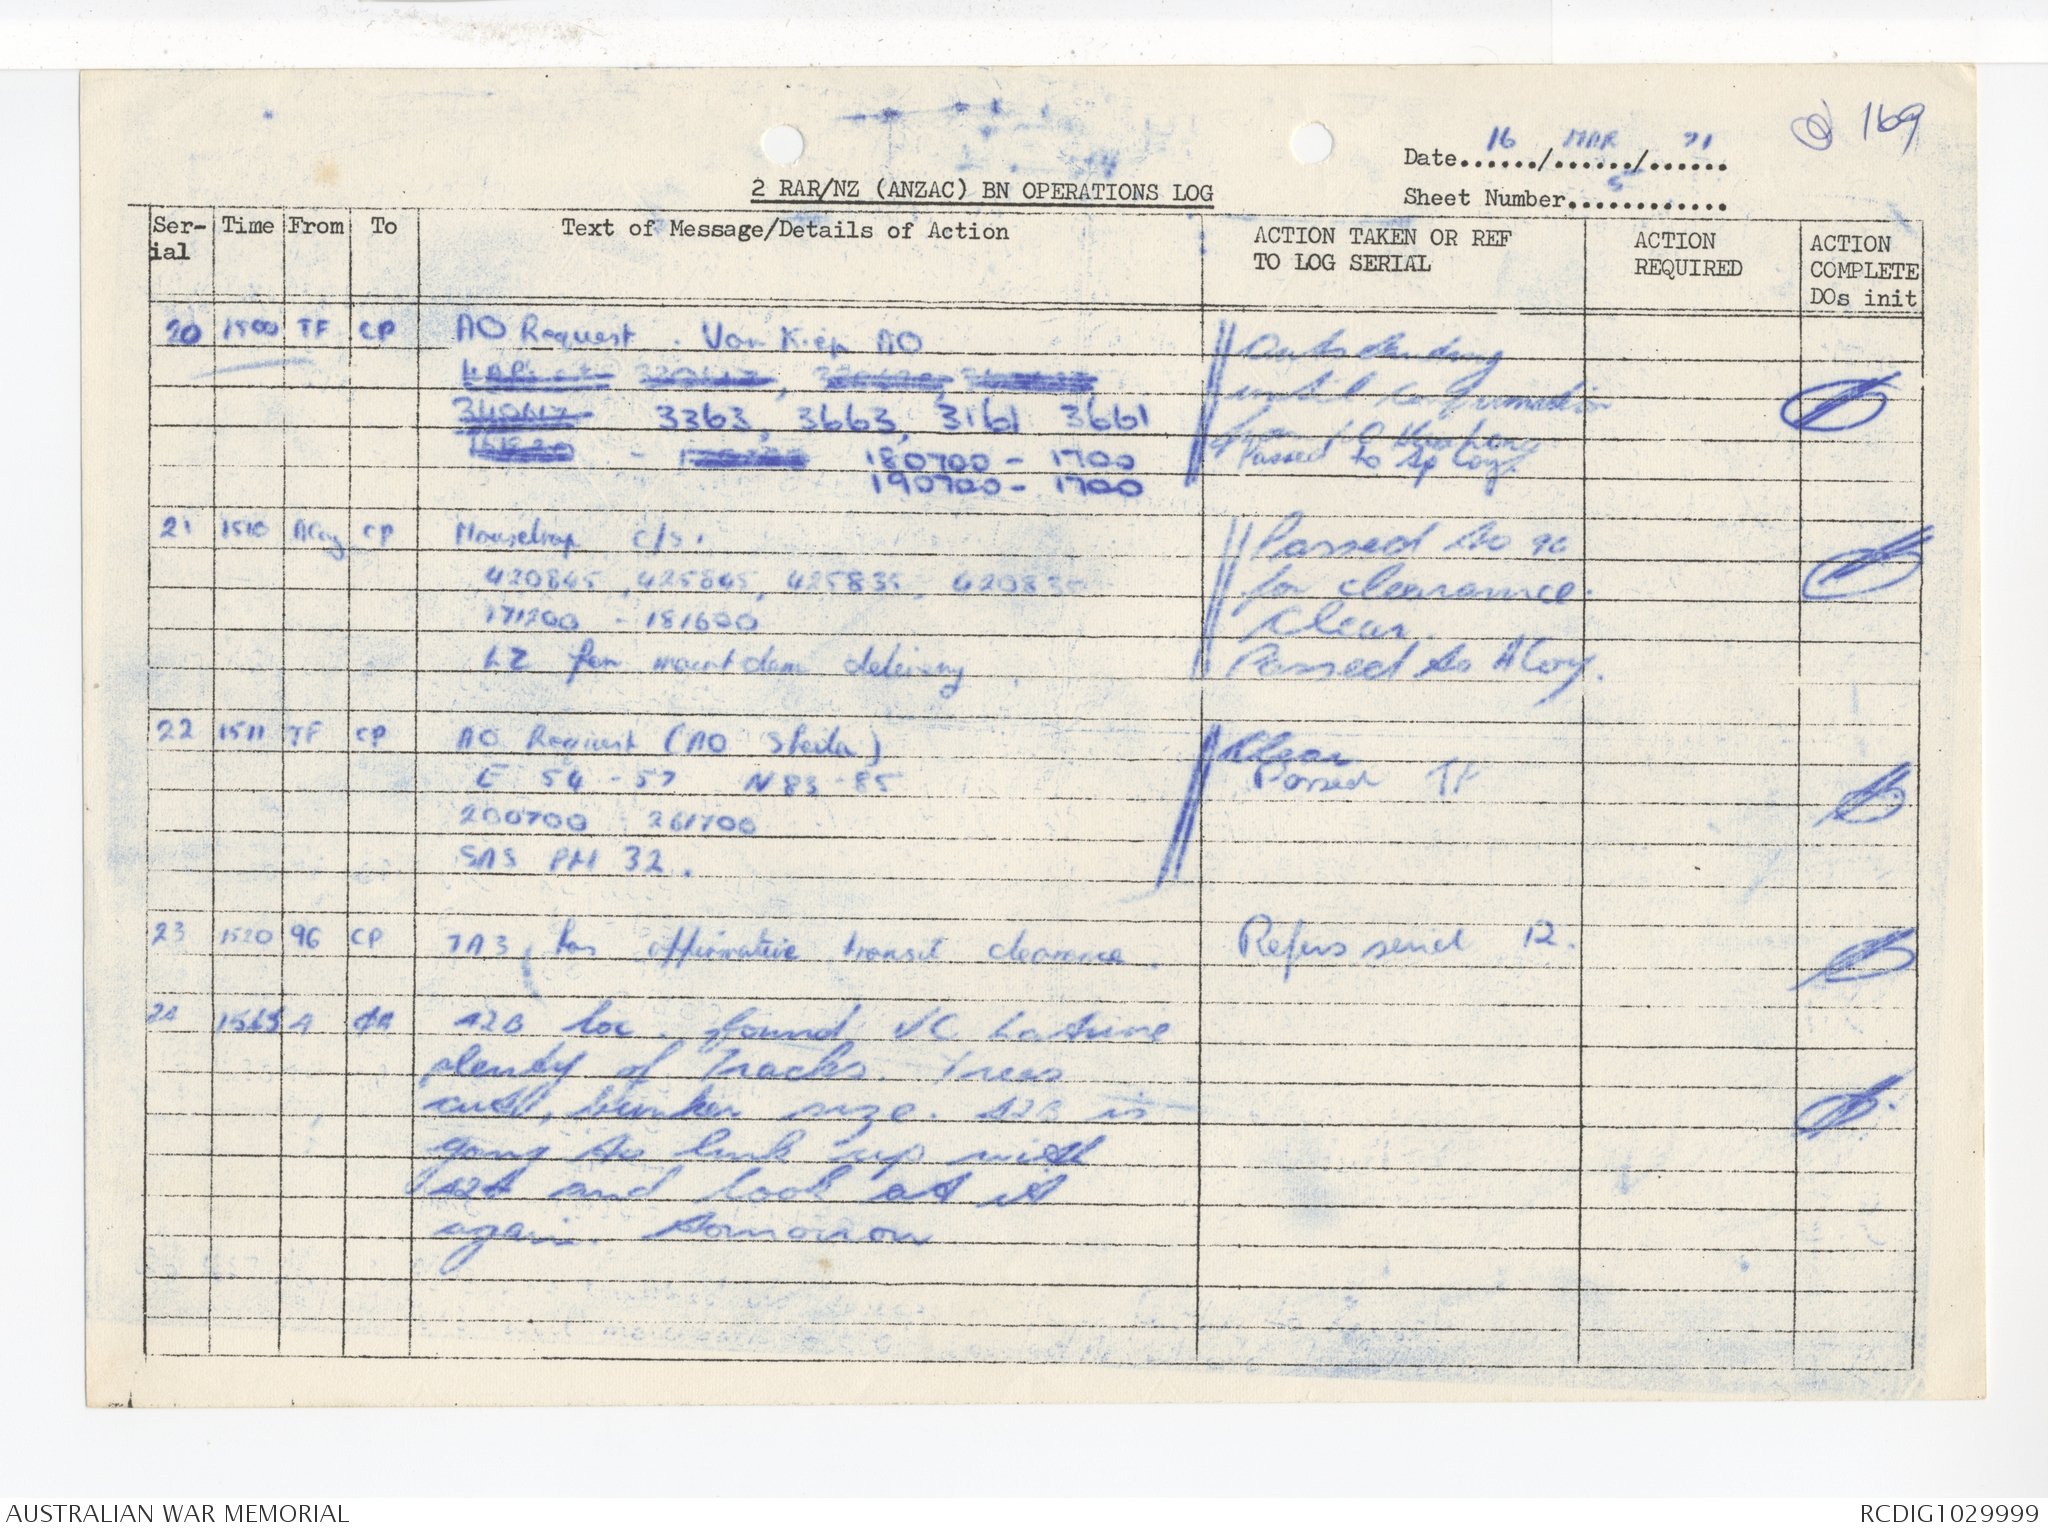 169
Date 16 / MAR / 71
2 RAR/NZ (ANZAC) BN OPERATIONS LOG
Sheet Number 5
Ser-ial Time From To Text of Message/Details of Action ACTION TAKEN OR REF TO LOG SERIAL ACTION REQUIRED ACTION COMPLETE DOs init
20 1500 TF CP AO Request. Van Kiep AO Outstanding
until confirmation
3363, 3663, 3161 3661 from
180700 - 1700 Passed to Sp Coy.
190700 - 1700
21 1510 A Coy CP Mousetrap c/s. Passed to 96
420845, 425845, 425835, 420835 for clearance.
171200 - 181600 Clear.
LZ for maintdem delivery Passed to A Coy.
22 1511 TF CP AO Request (AO Sheila) Clear
E 54 - 57 N 83 - 85 Passed TF
200700 261700
SAS PM 32.
23 1520 96 CP TA3 has affirmative transit clearance. Refers serial 12.
24 1565 A 42B loc. found VC Latrine
plenty of Tracks. Trees
cut, bunker size. 42B is
going to link up with
and look at it
again. tomorrow
AUSTRALIAN WAR MEMORIAL
RCDIG1029999